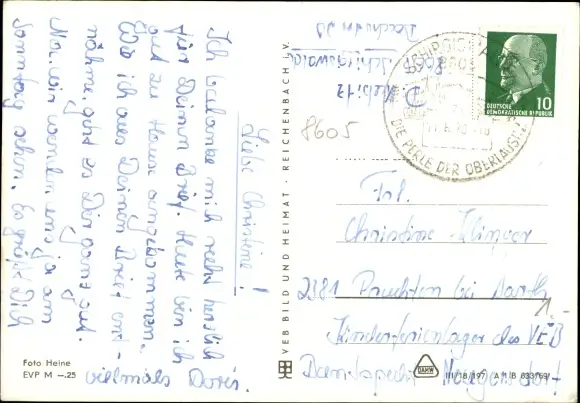 Liebe Christine!
Ich bedanke mich recht herzlich
für Deinen Brief. Heute bin ich
gut zu Hause angekommen.
Wie ich aus Deinem Brief ent-
nehme, geht es Dir ganz gut.
Na, wir werden uns ja am
Sonntag sehen. Es grüßt Dich
vielmals Doris.
Foto Heine
EVP M –.25
VEB BILD UND HEIMAT · REICHENBACH i. V.
8605
DIE PERLE DER OBERLAUSITZ
DEUTSCHE
DEMOKRATISCHE
10
Frl.
Christine Klinger
2381 Pruchten bei Barth
Kinderferienlager des VEB
III/18/197 A 1/B 833/69
DAMW